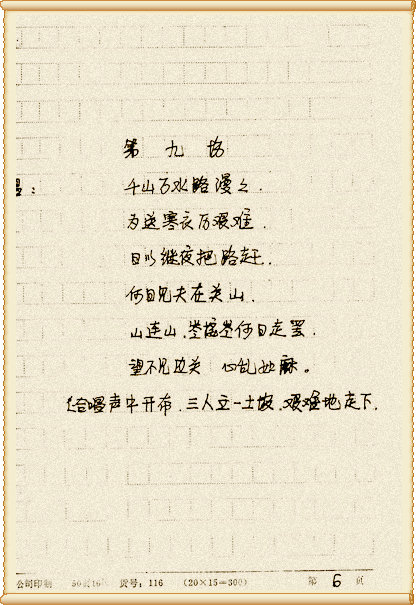 第 九 场
千山万水路漫々.
为送寒衣历艰难.
日以继夜把路赶.
何日见夫在关山.
山连山, 何日走罢.
望不见边关 心乱如麻。
(合唱声中开布,三人立一土坡,艰难地走下.
公司印制 货号：116 (20×15=300) 第 6 页